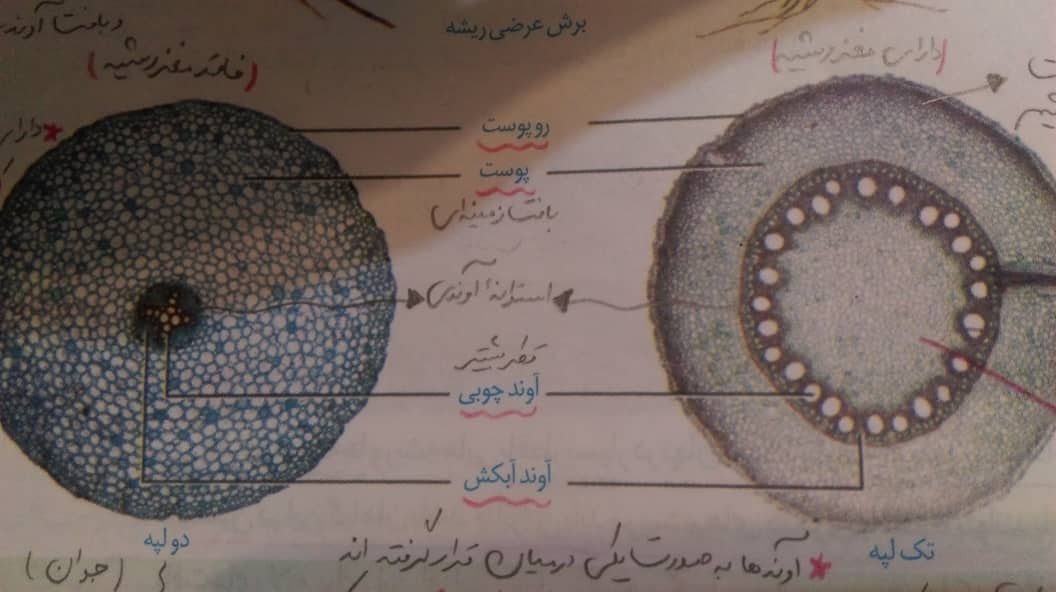 و بافت آوندی
برش عرضی ریشه
(فاقد مغز ریشه)
(دارای مغز ریشه)
*دارای
روپوست
پوست
بافت زمینه‌ای
استوانهٔ آوندی
قطر بیشتر
آوند چوبی
آوند آبکش
دو لپه
تک لپه
* آوندها به صورت یکی در میان قرار گرفته اند
(جوان)